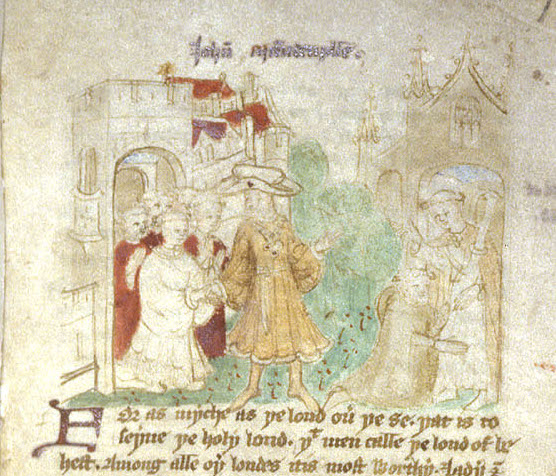 John Maundevylle.
For as myche as þe lond ou͛ þe se. þat is to
seyne þe holy lond. þᵗ men calle þe lond of be
hest. Among alle oþ͛ londes it is most Worthy. Lady &